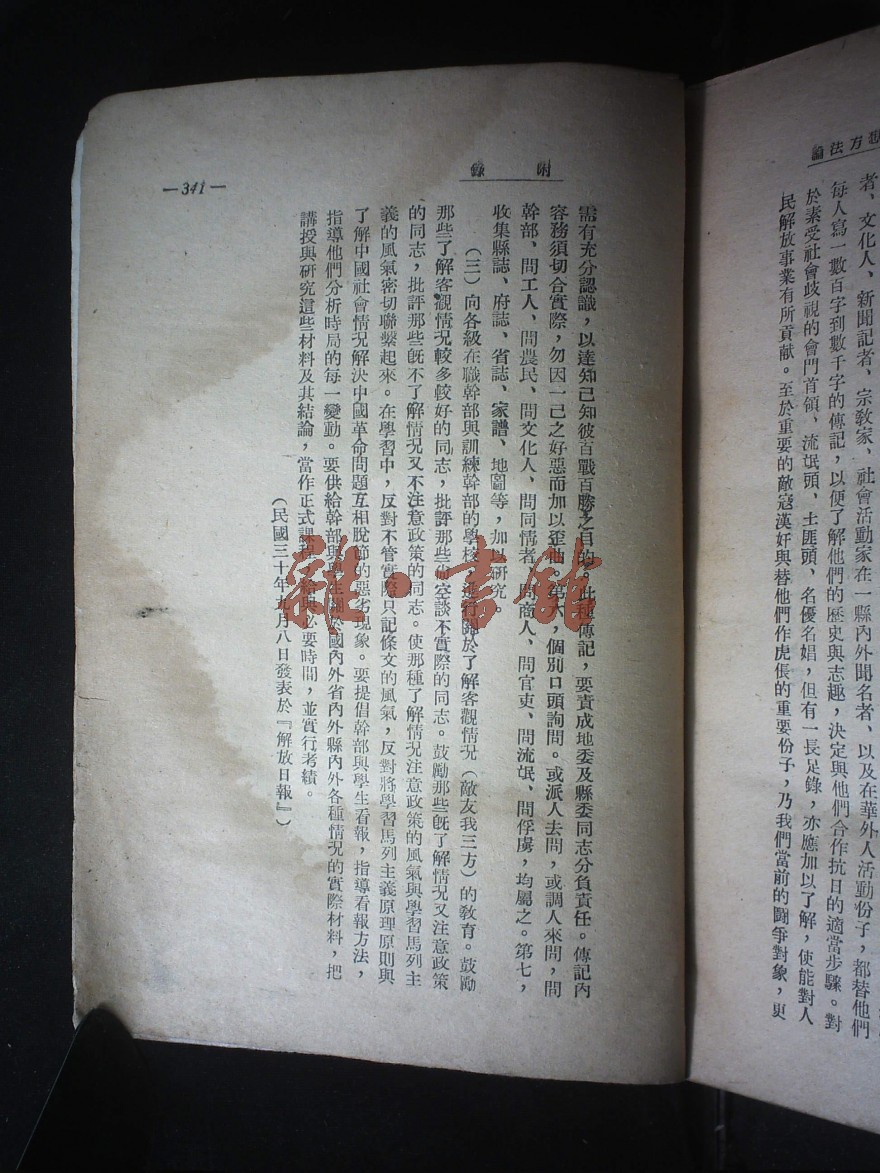 想方法論
者、文化人、新聞記者、宗敎家、社會活動家在一縣內外聞名者、以及在華外人活動份子，都替他們
每人寫一數百字到數千字的傳記，以便了解他們的歷史與志趣，決定與他們合作抗日的適當步驟。對
於素受社會歧視的會門首領、流氓頭、土匪頭、名優名娼，但有一長足錄，亦應加以了解，使能對人
民解放事業有所貢献。至於重要的敵寇漢奸與替他們作虎倀的重要份子，乃我們當前的鬬爭對象，更
附錄
需有充分認識，以達知己知彼百戰百勝之目的。此種傳記，要責成地委及縣委同志分負責任。傳記內
容務須切合實際，勿因一己之好惡而加以歪曲。第六，個別口頭詢問。或派人去問，或調人來問，問
幹部、問工人、問農民、問文化人、問同情者、問商人、問官吏、問流氓、問俘虜，均屬之。第七，
收集縣誌、府誌、省誌、家譜、地圖等，加以研究。
（三）向各級在職幹部與訓練幹部的學校，進行關於了解客觀情況（敵友我三方）的敎育。鼓勵
那些了解客觀情況較多較好的同志，批評那些尙空談不實際的同志。鼓勵那些旣了解情況又注意政策
的同志，批評那些旣不了解情況又不注意政策的同志。使那種了解情況注意政策的風氣與學習馬列主
義的風氣密切聯繫起來。在學習中，反對不管實際只記條文的風氣，反對將學習馬列主義原理原則與
了解中國社會情況解決中國革命問題互相脫節的惡劣現象。要提倡幹部與學生看報，指導看報方法，
指導他們分析時局的每一變動。要供給幹部與學生關於國內外省內外縣內外各種情況的實際材料，把
講授與研究這些材料及其結論，當作正式課程，給與必要時間，並實行考績。
（民國三十年九月八日發表於『解放日報』）
—341—
雜·書館